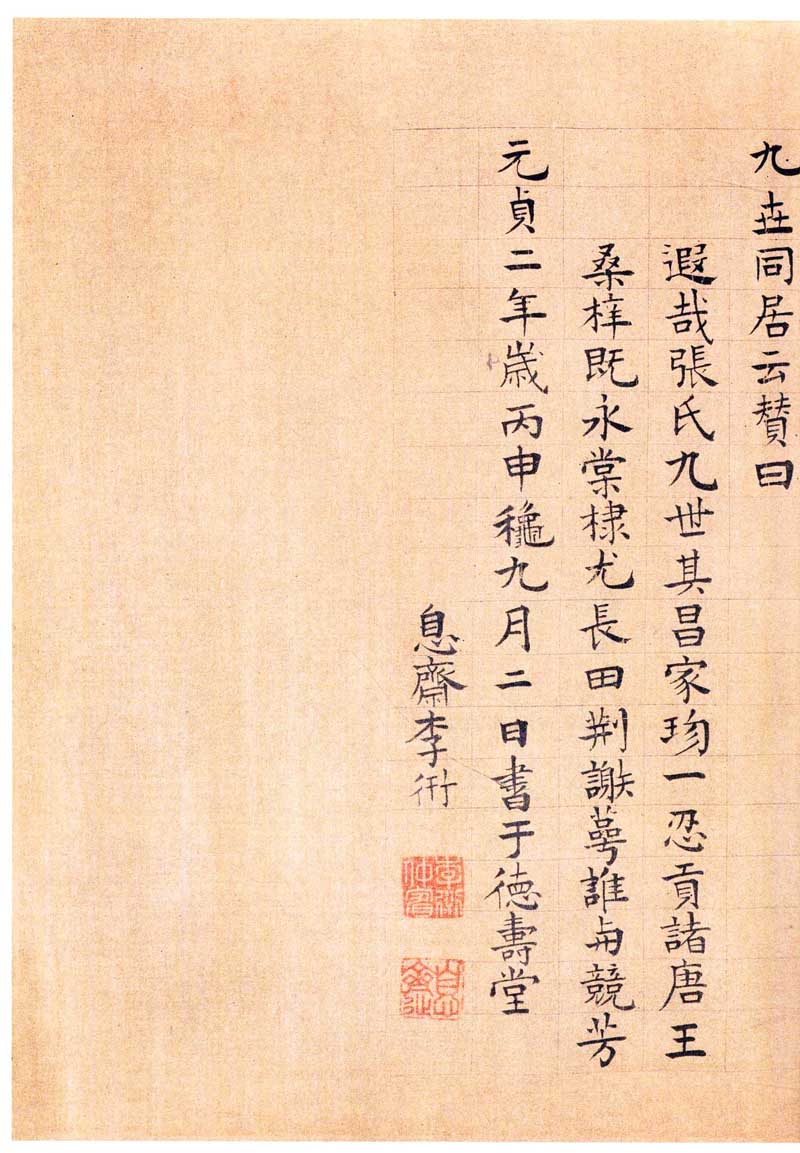 九世同居云賛曰
遐哉張氏九世其昌家珎一忍貢諸唐王
桑梓既永棠棣尤長田荆謝萼誰与競芳
元貞二年歳丙申穐九月二日書于德壽堂
息齋李衎
李衎仲賓
息齋